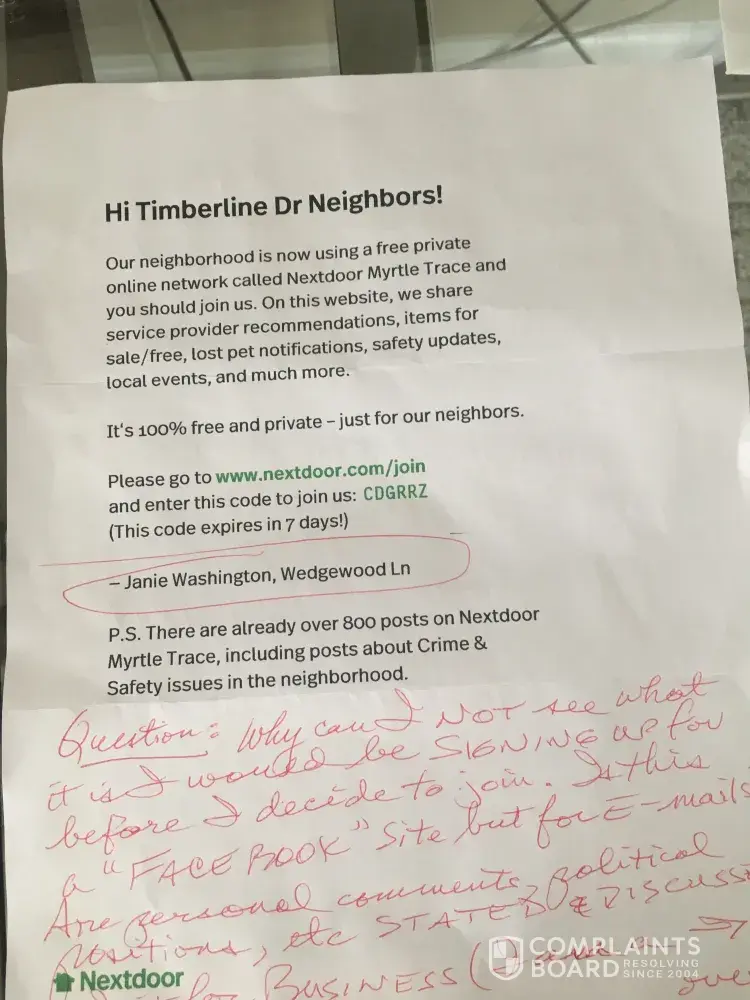 Hi Timberline Dr Neighbors!
Our neighborhood is now using a free private
online network called Nextdoor Myrtle Trace and
you should join us. On this website, we share
service provider recommendations, items for
sale/free, lost pet notifications, safety updates,
local events, and much more.
It's 100% free and private – just for our neighbors.
Please go to www.nextdoor.com/join
and enter this code to join us: CDGRRZ
(This code expires in 7 days!)
– Janie Washington, Wedgewood Ln
P.S. There are already over 800 posts on Nextdoor
Myrtle Trace, including posts about Crime &
Safety issues in the neighborhood.
Question: Why can I NOT see what
it is I would be SIGNING UP for
before I decide to join. Is this
a "FACE BOOK" Site but for E-mails
Are personal comments, political
positions, etc STATED & DISCUSS
BUSINESS (I
over
Nextdoor
COMPLAINTS
BOARD RESOLVING
SINCE 2004